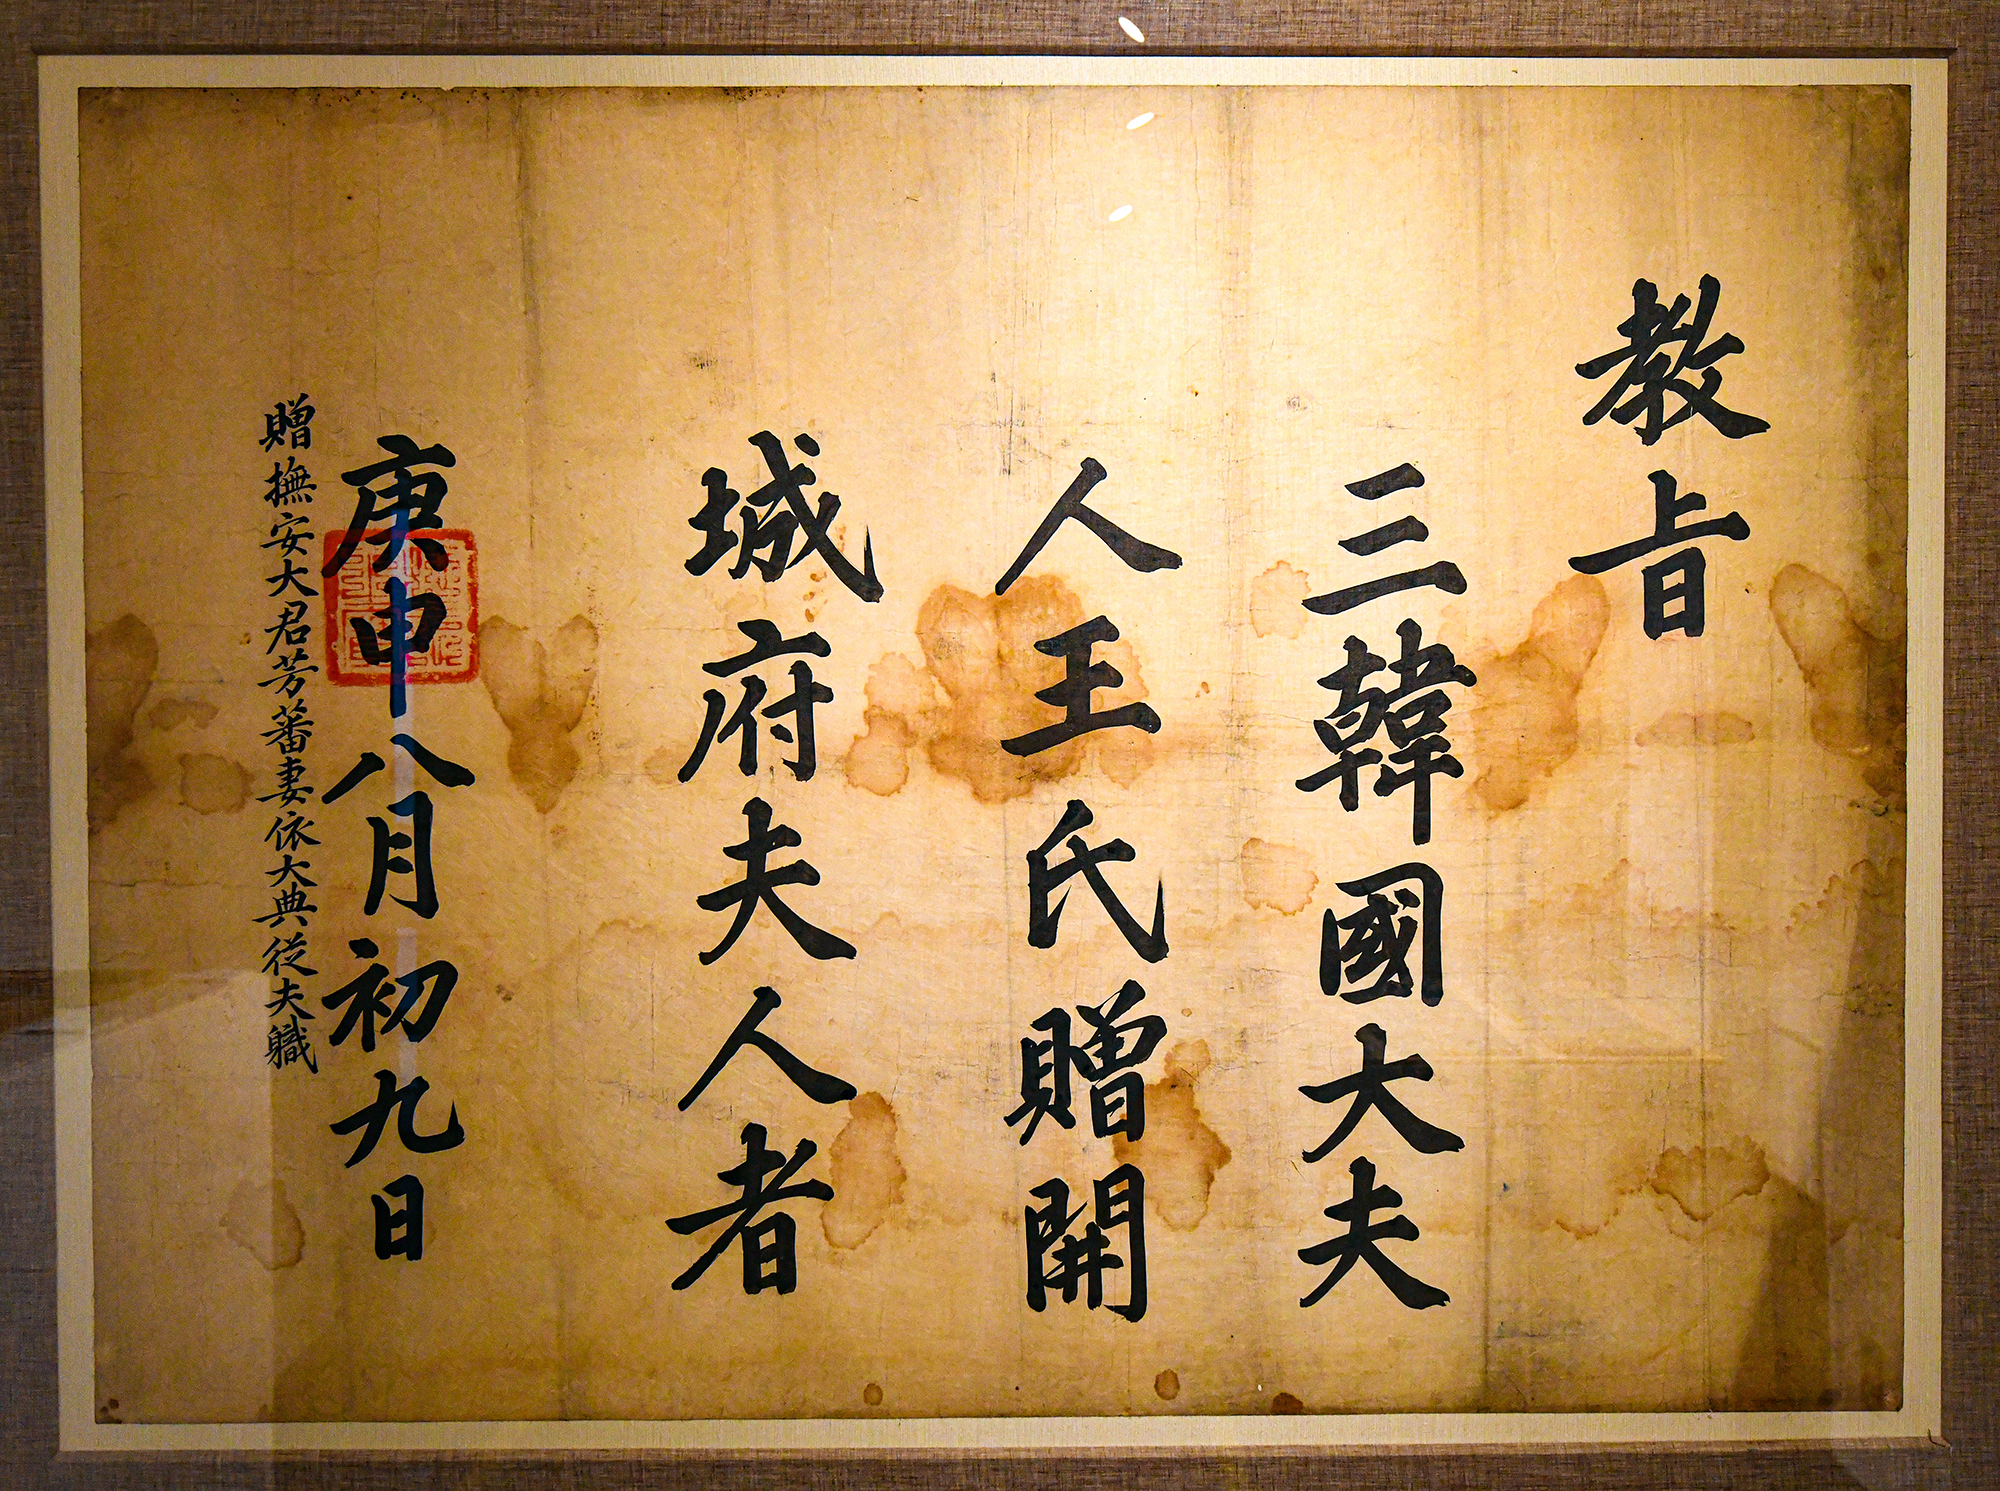 教旨
三韓國大夫
人王氏贈開
城府夫人者
庚申八月初九日
贈撫安大君芳蕃妻依大典從夫職